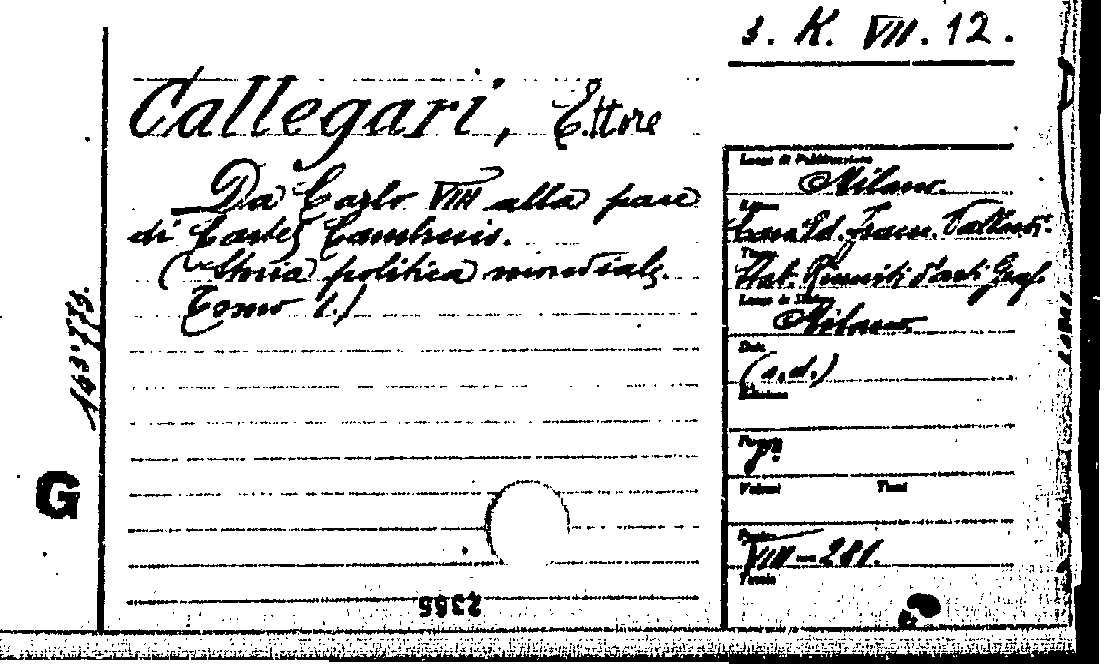 3. K. VII. 12.
Callegari, Ettore
Da Carlo VIII alla pace
di Castel Cambresis.
(Storia politica mondiale.
Tomo 1.)
143.775.
G
2365
Luogo di Pubblicazione
Milano.
Casa Ed. Franc. Vallardi.
Stab. Riuniti d'arti Graf.
Luogo di Stampa
Milano
Data
(s.d.)
Edizione
Pagine
Volumi Tomi
VIII-281.
Tavole